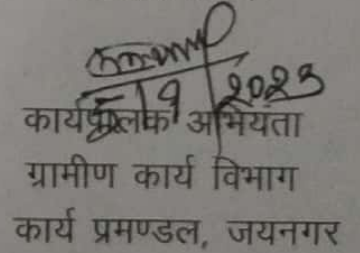 5/9/2023
कार्यपालक अभियंता
ग्रामीण कार्य विभाग
कार्य प्रमण्डल, जयनगर